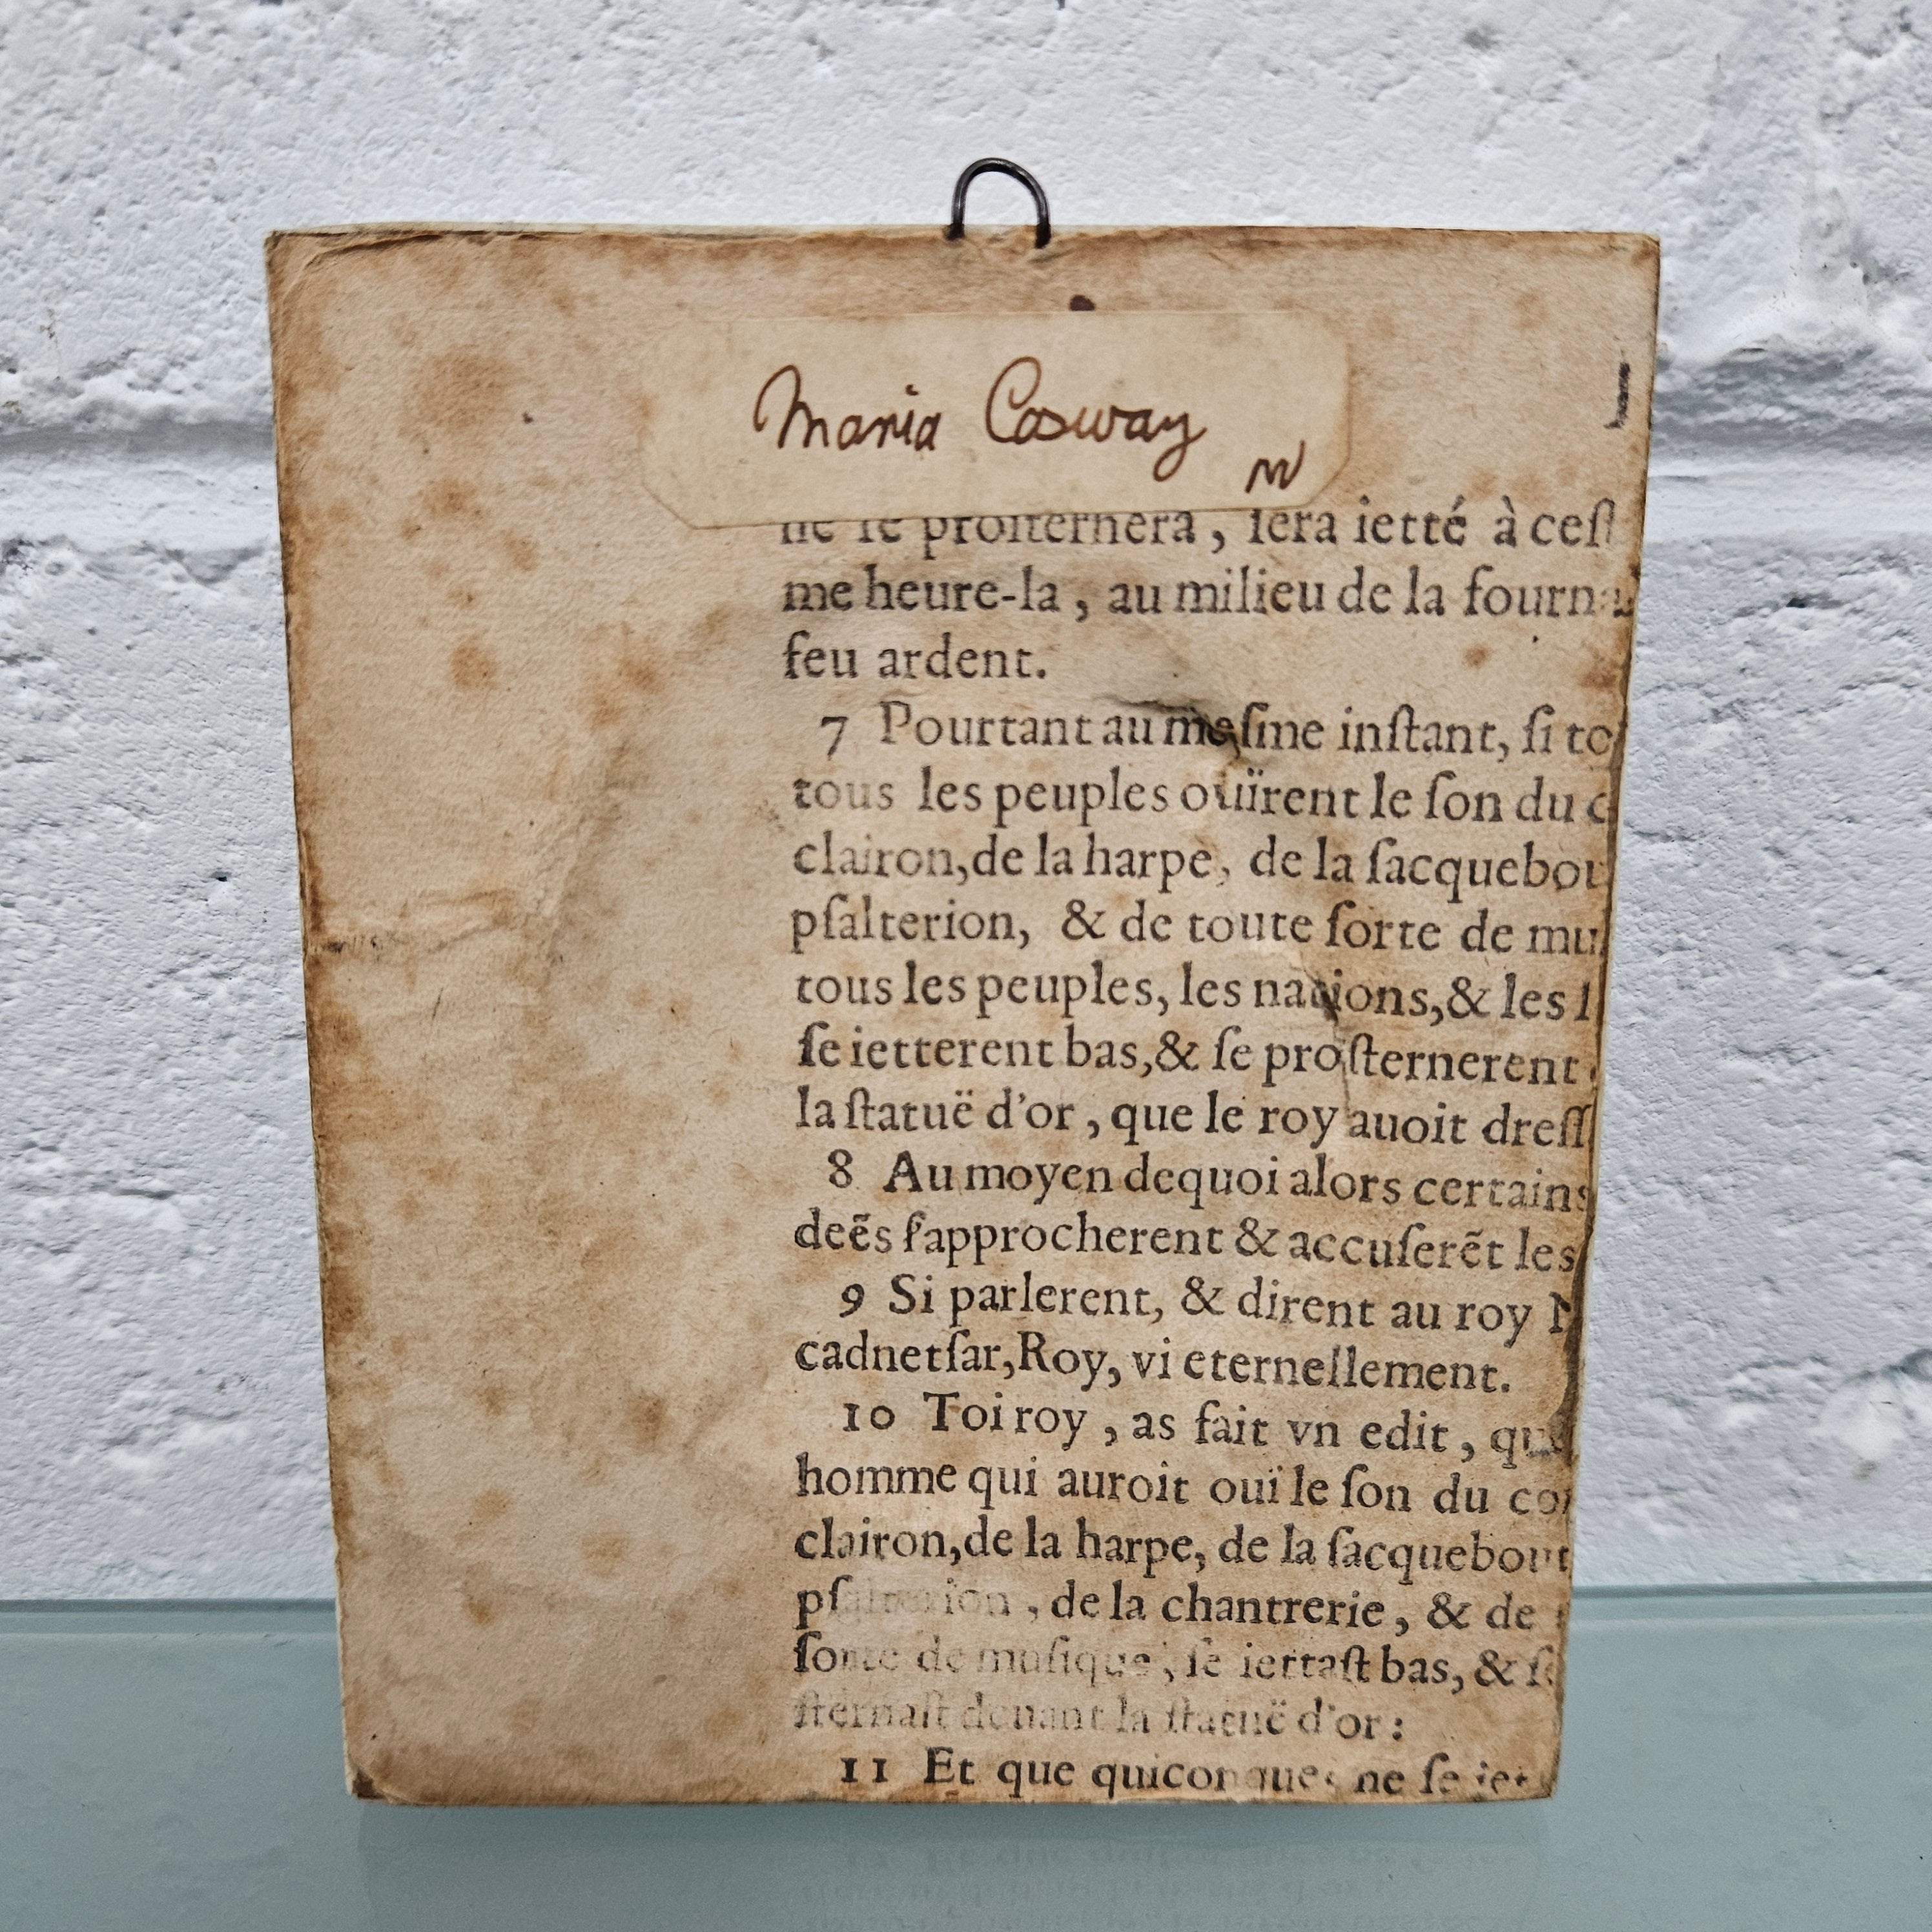 Maria Cosway
ne ſe proſternera, ſera ietté à ceſt
me heure-la, au milieu de la fourna
feu ardent.
7 Pourtant au meſme inſtant, ſi to
tous les peuples ouïrent le ſon du c
clairon, de la harpe, de la ſacquebou
pſalterion, & de toute ſorte de mu
tous les peuples, les nations, & les l
ſe ietterent bas, & ſe proſternerent
la ſtatuë d'or, que le roy auoit dreſſ
8 Au moyen dequoi alors certains
deẽs ſ'approcherent & accuſerẽt les
9 Si parlerent, & dirent au roy N
cadnetſar, Roy, vi eternellement.
10 Toi roy, as fait vn edit, que
homme qui auroit ouï le ſon du cor
clairon, de la harpe, de la ſacquebout
pſalterion, de la chantrerie, & de
ſorte de muſique, ſe iettaſt bas, & ſe
ſternaſt deuant la ſtatuë d'or:
11 Et que quiconque ne ſe iet